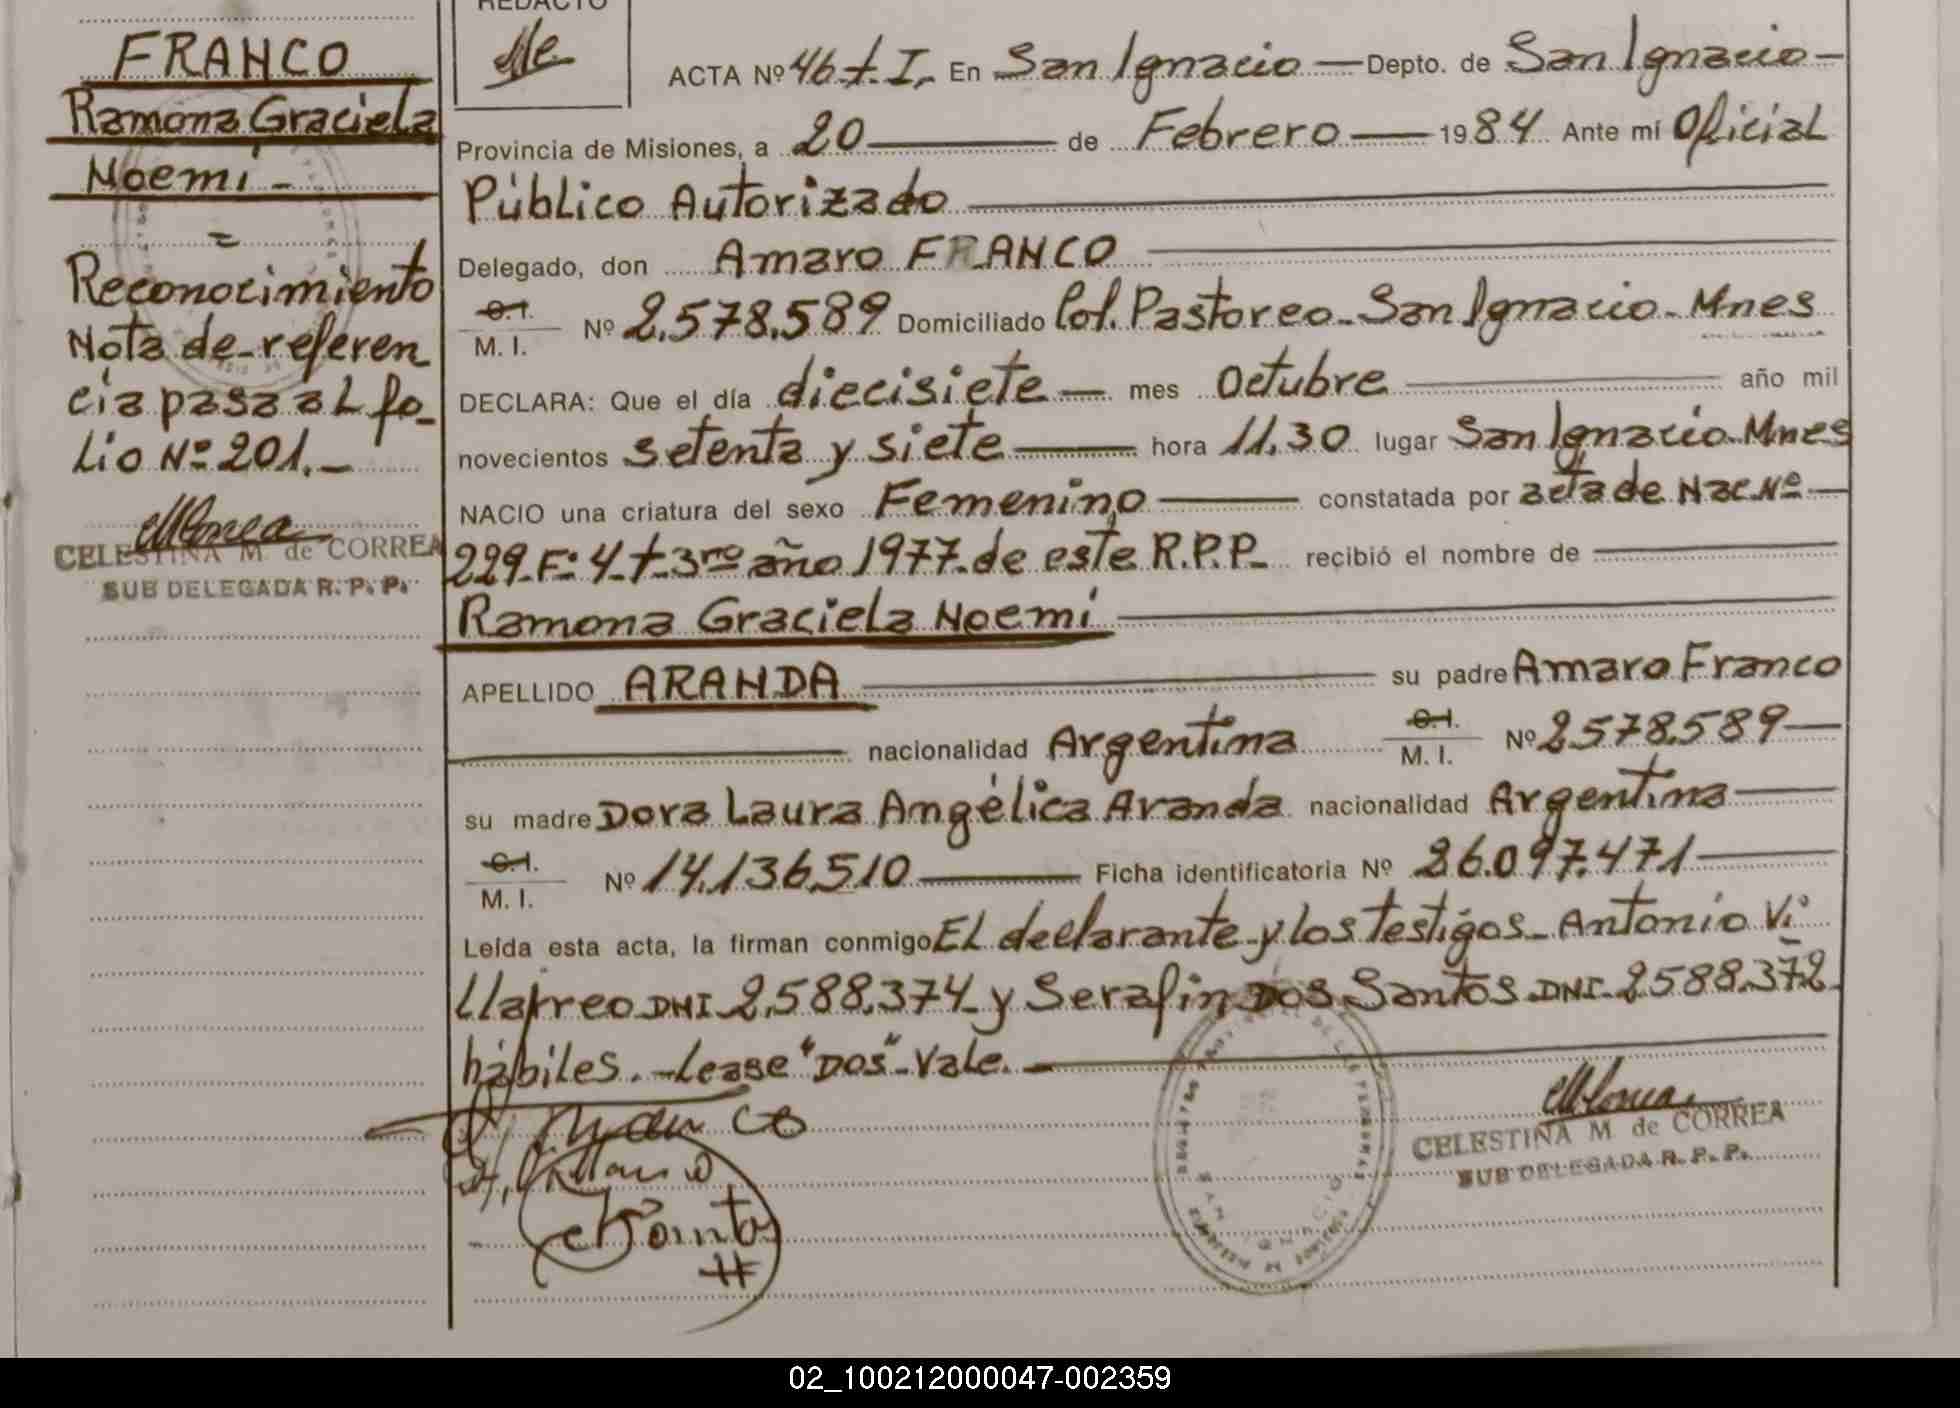 FRANCO
Ramona Graciela
Noemí -
=
Reconocimiento
Nota de referen
cia pasa al fo-
lio Nº 201.-
CELESTINA M de CORREA
SUB DELEGADA R. P. P.
REDACTO
ACTA Nº 46 t. I. En San Ignacio — Depto. de San Ignacio —
Provincia de Misiones, a 20 — de Febrero — 1984 Ante mí Oficial
Público Autorizado
Delegado, don Amaro FRANCO
C.I.
M. I. Nº 2.578.589 Domiciliado Col. Pastoreo - San Ignacio - Mnes
DECLARA: Que el día diecisiete — mes Octubre — año mil
novecientos setenta y siete — hora 11,30 lugar San Ignacio Mnes
NACIO una criatura del sexo Femenino — constatada por acta de Nac. Nº —
229. F: 4. t. 3ro año 1977. de este R.P.P. recibió el nombre de
Ramona Graciela Noemí
APELLIDO ARANDA — su padre Amaro Franco
nacionalidad Argentina C.I.
M. I. Nº 2578.589 —
su madre Dora Laura Angélica Aranda nacionalidad Argentina —
C.I.
M. I. Nº 14.136.510 — Ficha identificatoria Nº 26.097.471 —
Leída esta acta, la firman conmigo El declarante y los testigos - Antonio Vi
llarreo DNI 2.588.374 y Serafin Dos Santos DNI. 2588.372
hábiles. - Lease "Dos" - Vale. -
CELESTINA M de CORREA
SUB DELEGADA R. P. P.
SAN IGNACIO
02_100212000047-002359